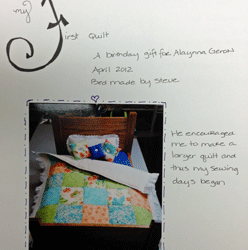 my
First Quilt
A birthday gift for Alaynna Geron
April 2012
Bed made by Steve
He encouraged
me to make a
larger quilt and
thus my sewing
days began